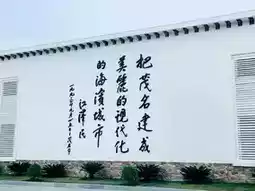 把茂名建成
美麗的现代化
的海濱城市
江泽民